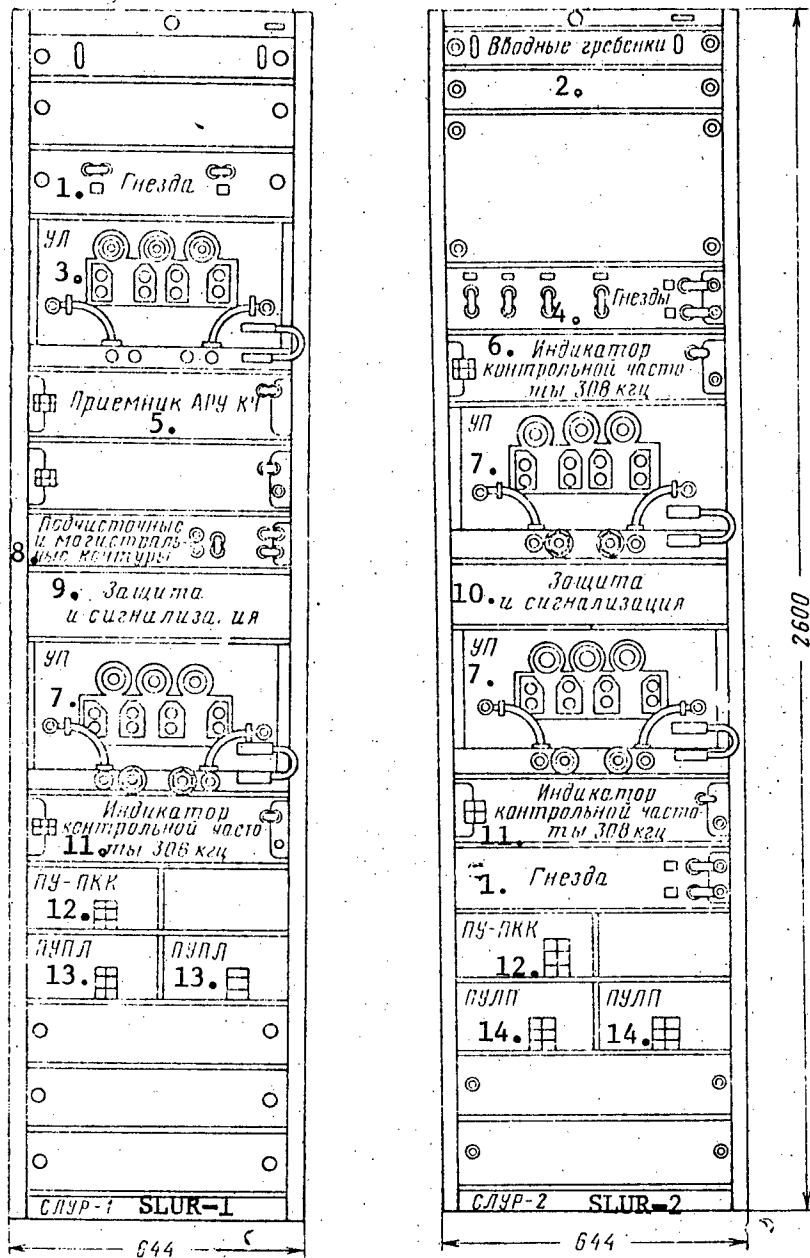 1. Гнезда
УЛ
3.
Приемник АРУ КЧ
5.
Подчисточные
и магистраль-
8. ные контуры
9. Защита
и сигнализа. ия
УП
7.
Индикатор
контрольной часто
11. ты 308 кгц
ПУ-ПКК
12.
ПУПЛ ПУПЛ
13. 13.
СЛУР-1 SLUR-1
644
Вводные гребенки
2.
4. Гнезды
6. Индикатор
контрольной часто
ты 308 кгц
УП
7.
10. Защита
и сигнализация
УП
7.
Индикатор
контрольной часто-
11. ты 308 кгц
1. Гнезда
ПУ-ПКК
12.
ПУЛП ПУЛП
14. 14.
СЛУР-2 SLUR-2
644
2600